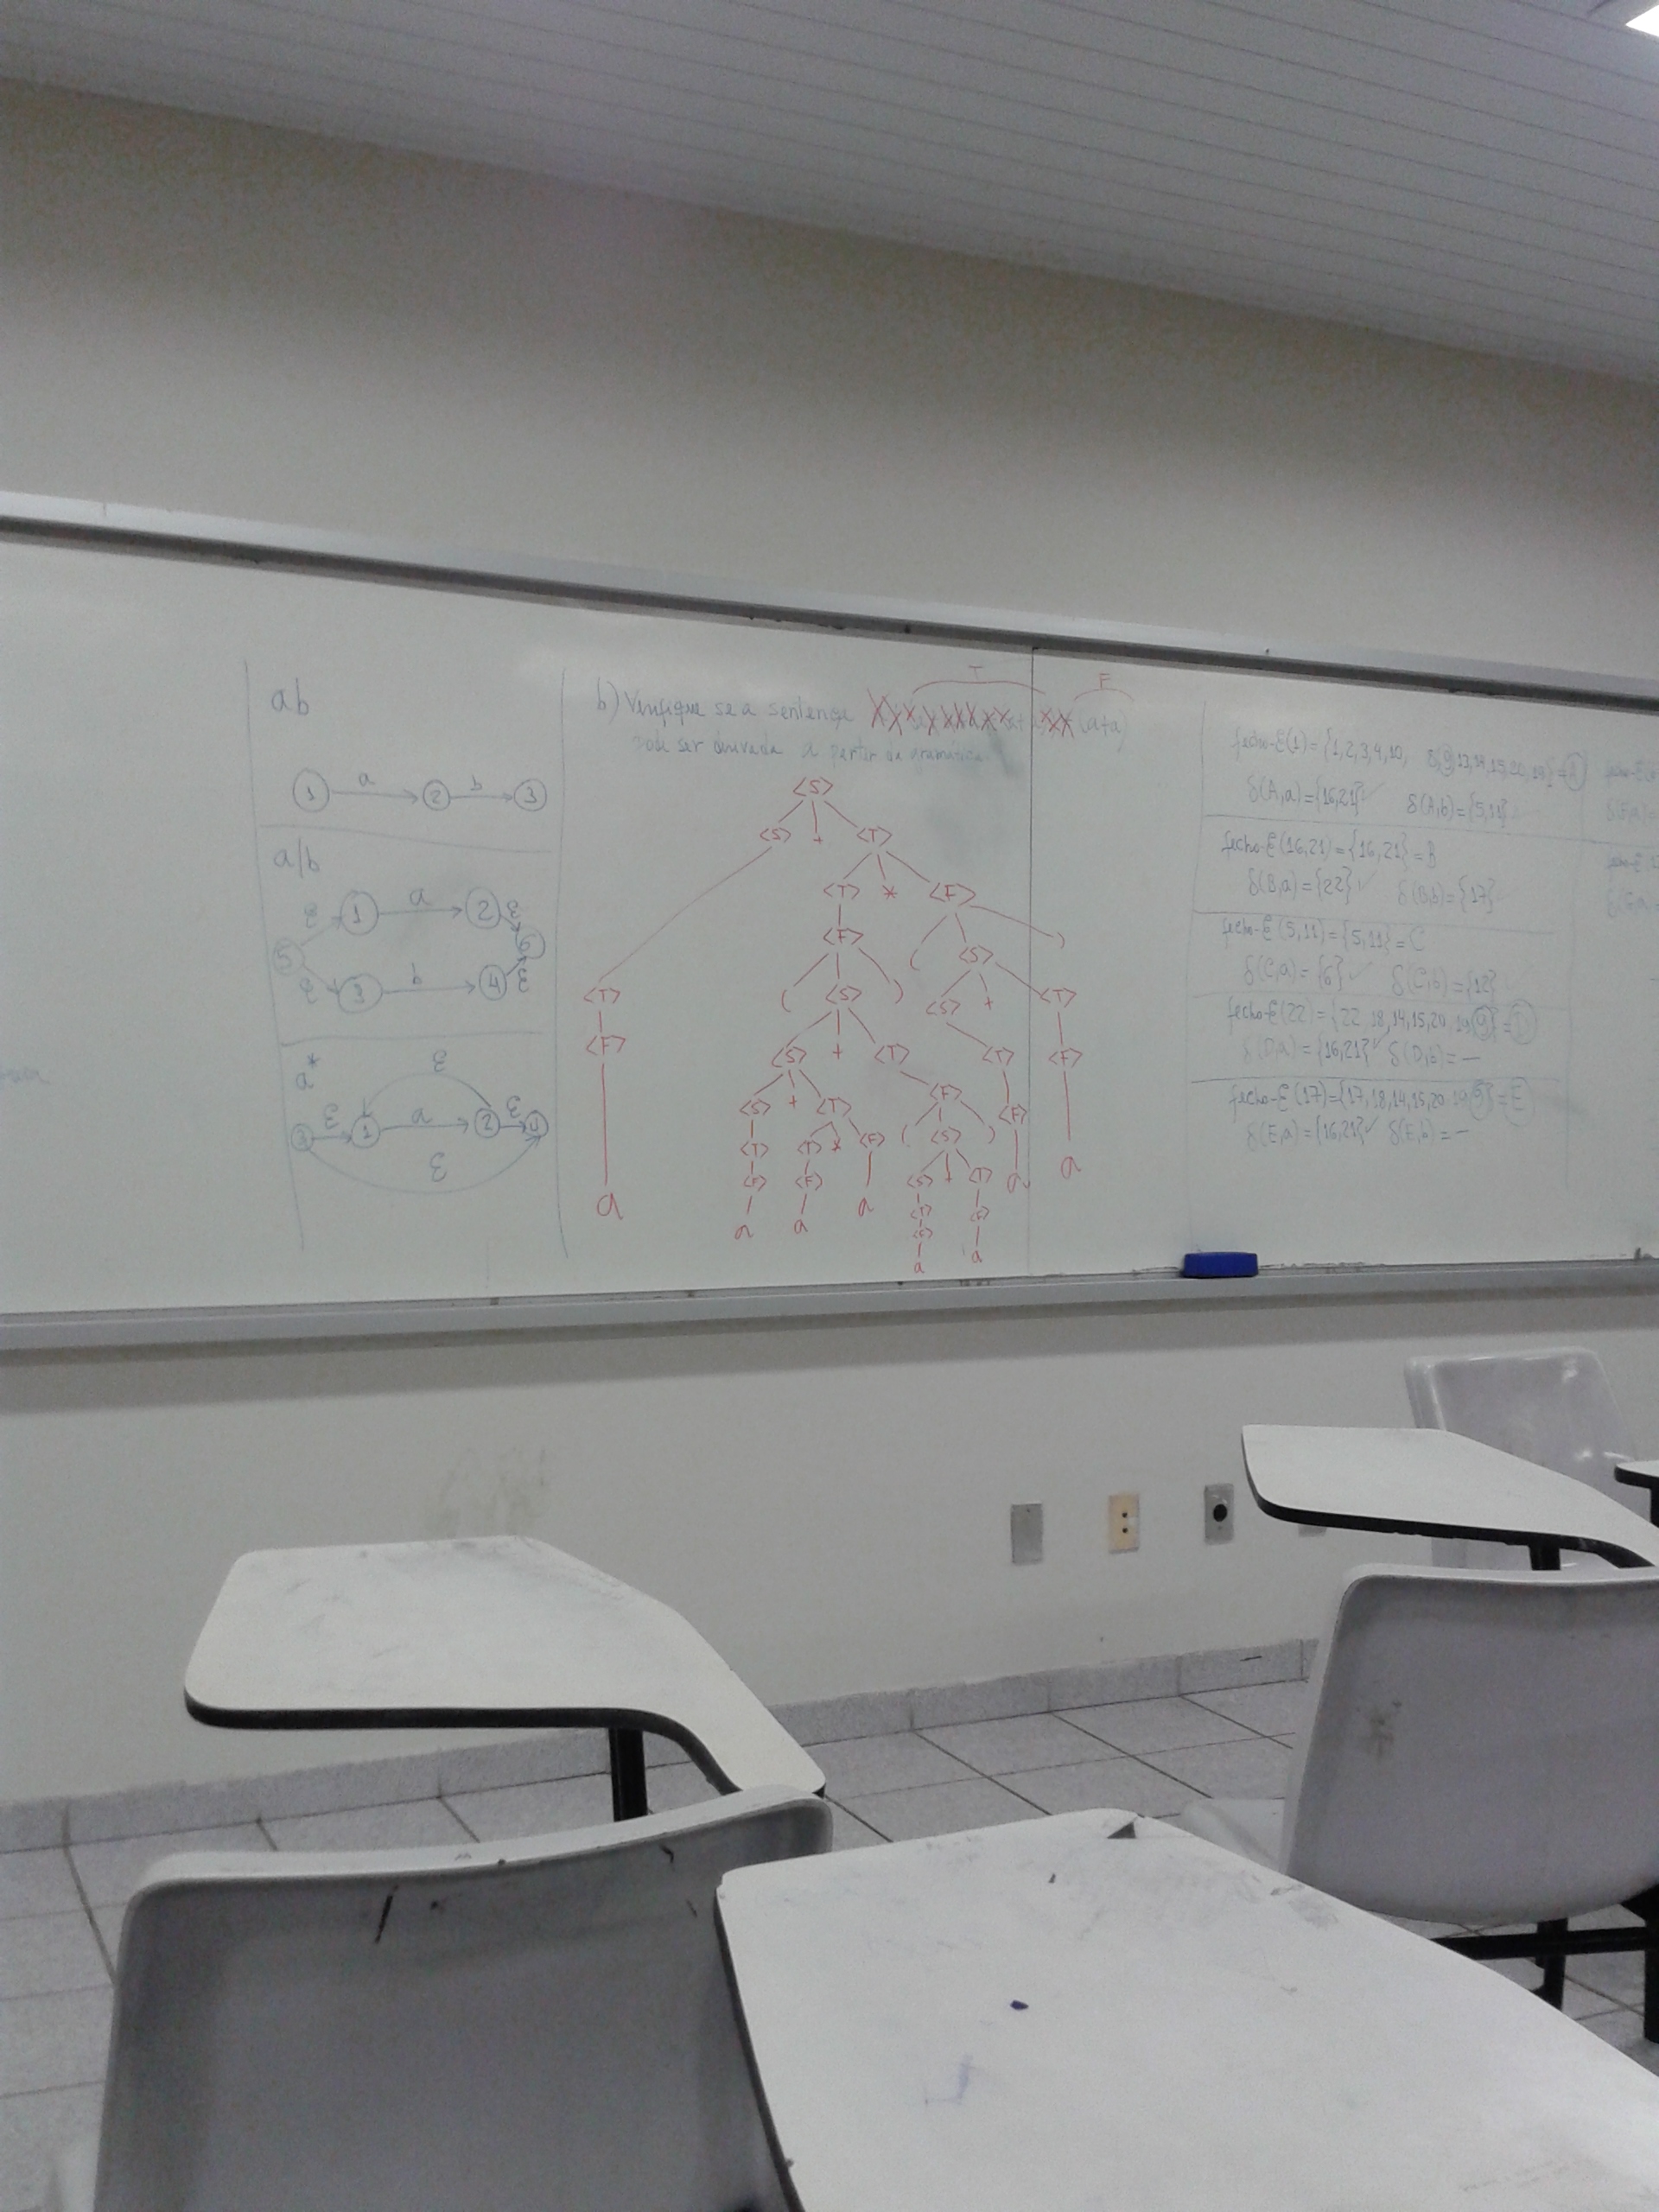 ab
1 a 2 b 3
a/b
ε 1 a 2 ε
5 6
ε 3 b 4 ε
a*
ε
3 ε 1 a 2 ε 4
ε
T F
b) Verifique se a sentença (a+a)
pode ser derivada a partir da gramática
<S>
<S> + <T>
<T> * <F>
<F> ( <S> )
<T> ( <S> ) <S> + <T>
<F> <S> + <T> <T> <F>
<S> + <T> <F> <F>
<T> <T> * <F> ( <S> ) a a
<F> <F> a <S> + <T>
a a a <T> <F>
<F> a
a
fecho-ε(1)={1,2,3,4,10, 13,14,15,20,19}
δ(A,a)={16,21} ✓ δ(A,b)={5,11}
fecho-ε(16,21)={16,21}=B
δ(B,a)={22} ✓ δ(B,b)={17}
fecho-ε(5,11)={5,11}=C
δ(C,a)={6} ✓ δ(C,b)={12}
fecho-ε(22)={22,18,14,15,20,19,9}=D
δ(D,a)={16,21} ✓ δ(D,b)=—
fecho-ε(17)={17,18,14,15,20,19,9}=E
δ(E,a)={16,21} ✓ δ(E,b)=—